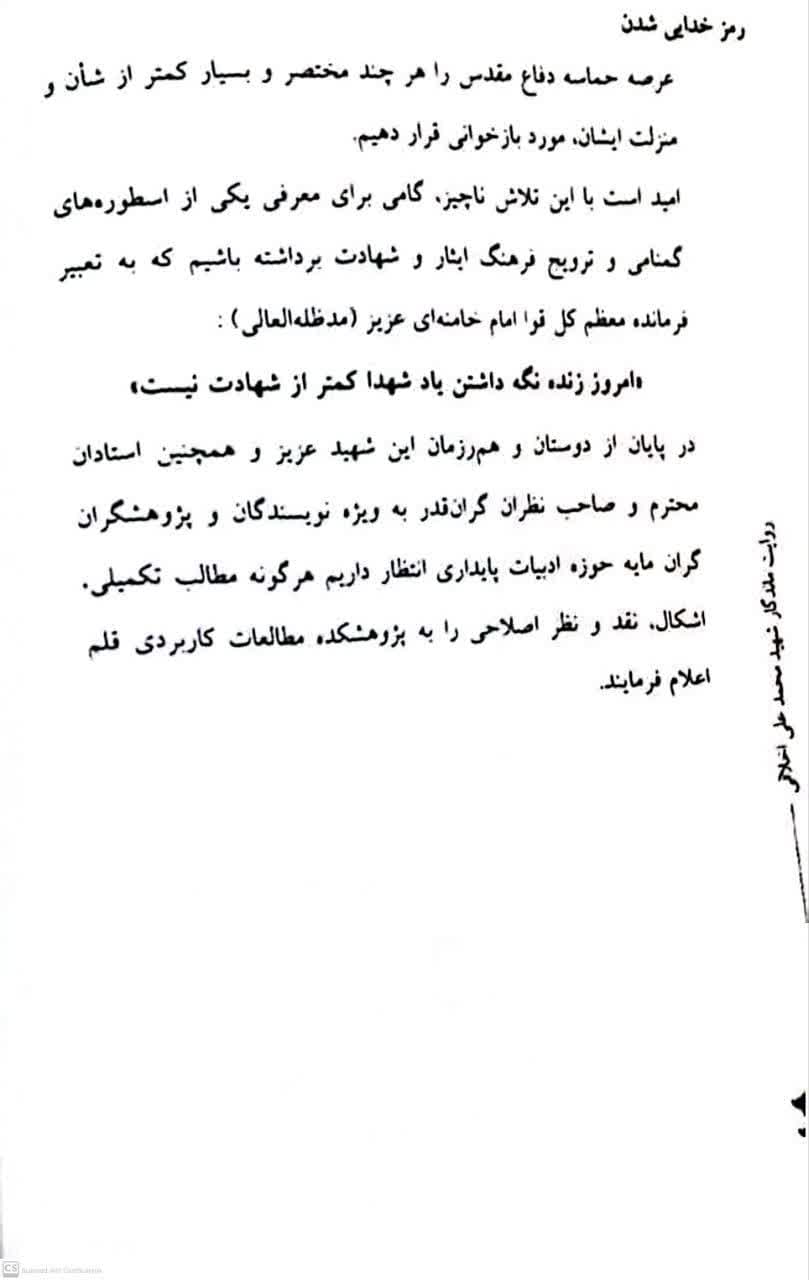 رمز خدایی شدن
عرصه حماسه دفاع مقدس را هر چند مختصر و بسیار کمتر از شأن و
منزلت ایشان، مورد بازخوانی قرار دهیم.
امید است با این تلاش ناچیز، گامی برای معرفی یکی از اسطوره‌های
گمنامی و ترویج فرهنگ ایثار و شهادت برداشته باشیم که به تعبیر
فرمانده معظم کل قوا امام خامنه‌ای عزیز (مدظله‌العالی) :
«امروز زنده نگه داشتن یاد شهدا کمتر از شهادت نیست»
در پایان از دوستان و هم‌رزمان این شهید عزیز و همچنین استادان
محترم و صاحب نظران گران‌قدر به ویژه نویسندگان و پژوهشگران
گران مایه حوزه ادبیات پایداری انتظار داریم هرگونه مطالب تکمیلی،
اشکال، نقد و نظر اصلاحی را به پژوهشکده مطالعات کاربردی قلم
اعلام فرمایند.
روایت ماندگار شهید محمد علی اخلاقی
CS